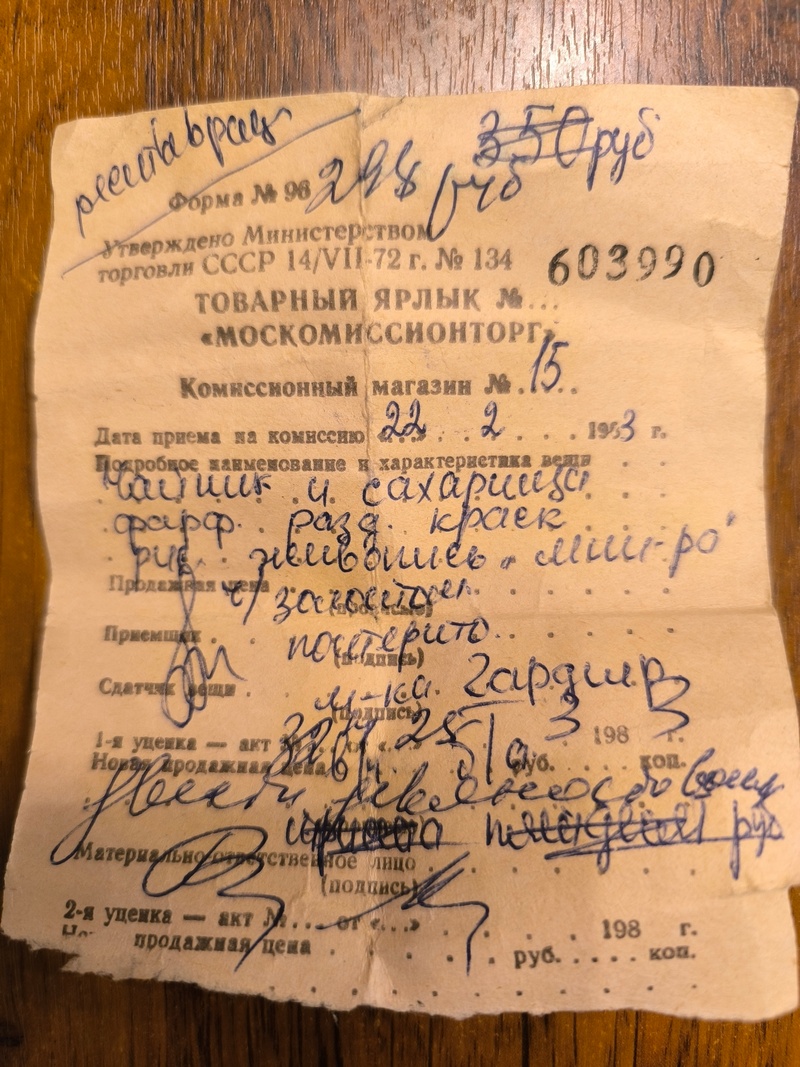 реставрац 350 руб
Форма № 96 298 руб
Утверждено Министерством
торговли СССР 14/VII-72 г. № 134 603990
ТОВАРНЫЙ ЯРЛЫК №...
«МОСКОМИССИОНТОРГ»
Комиссионный магазин №.15..
Дата приема на комиссию «22» 2 . . . . 1983 г.
Подробное наименование и характеристика вещи . .
Чайник и сахарница
фарф. разд. краск
рис. живопись
Продажная цена
с/ золотом
(прописью)
Приемщик. . .
(подпись)
Сдатчик вещи .
м-ка. Гарднер
(подпись)
1-я уценка — акт № 25 3 198 3 г.
Новая продажная цена руб. коп.
Двести девяносто
руб
Материально ответственное лицо . . . . . .
(подпись)
2-я уценка — акт №... от «...» . . . . 198 г.
продажная цена . . . . . . руб. . . . . коп.